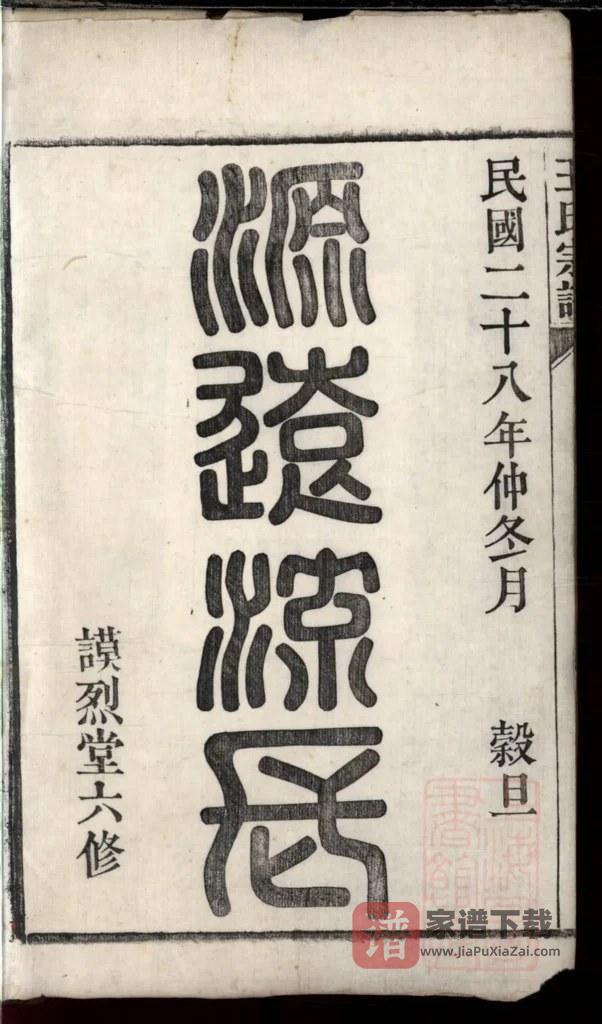 王氏宗譜
民國二十八年仲冬月 穀旦
源遠流長
謨烈堂六修
谱
家谱下载
www.JiaPuXiaZai.com